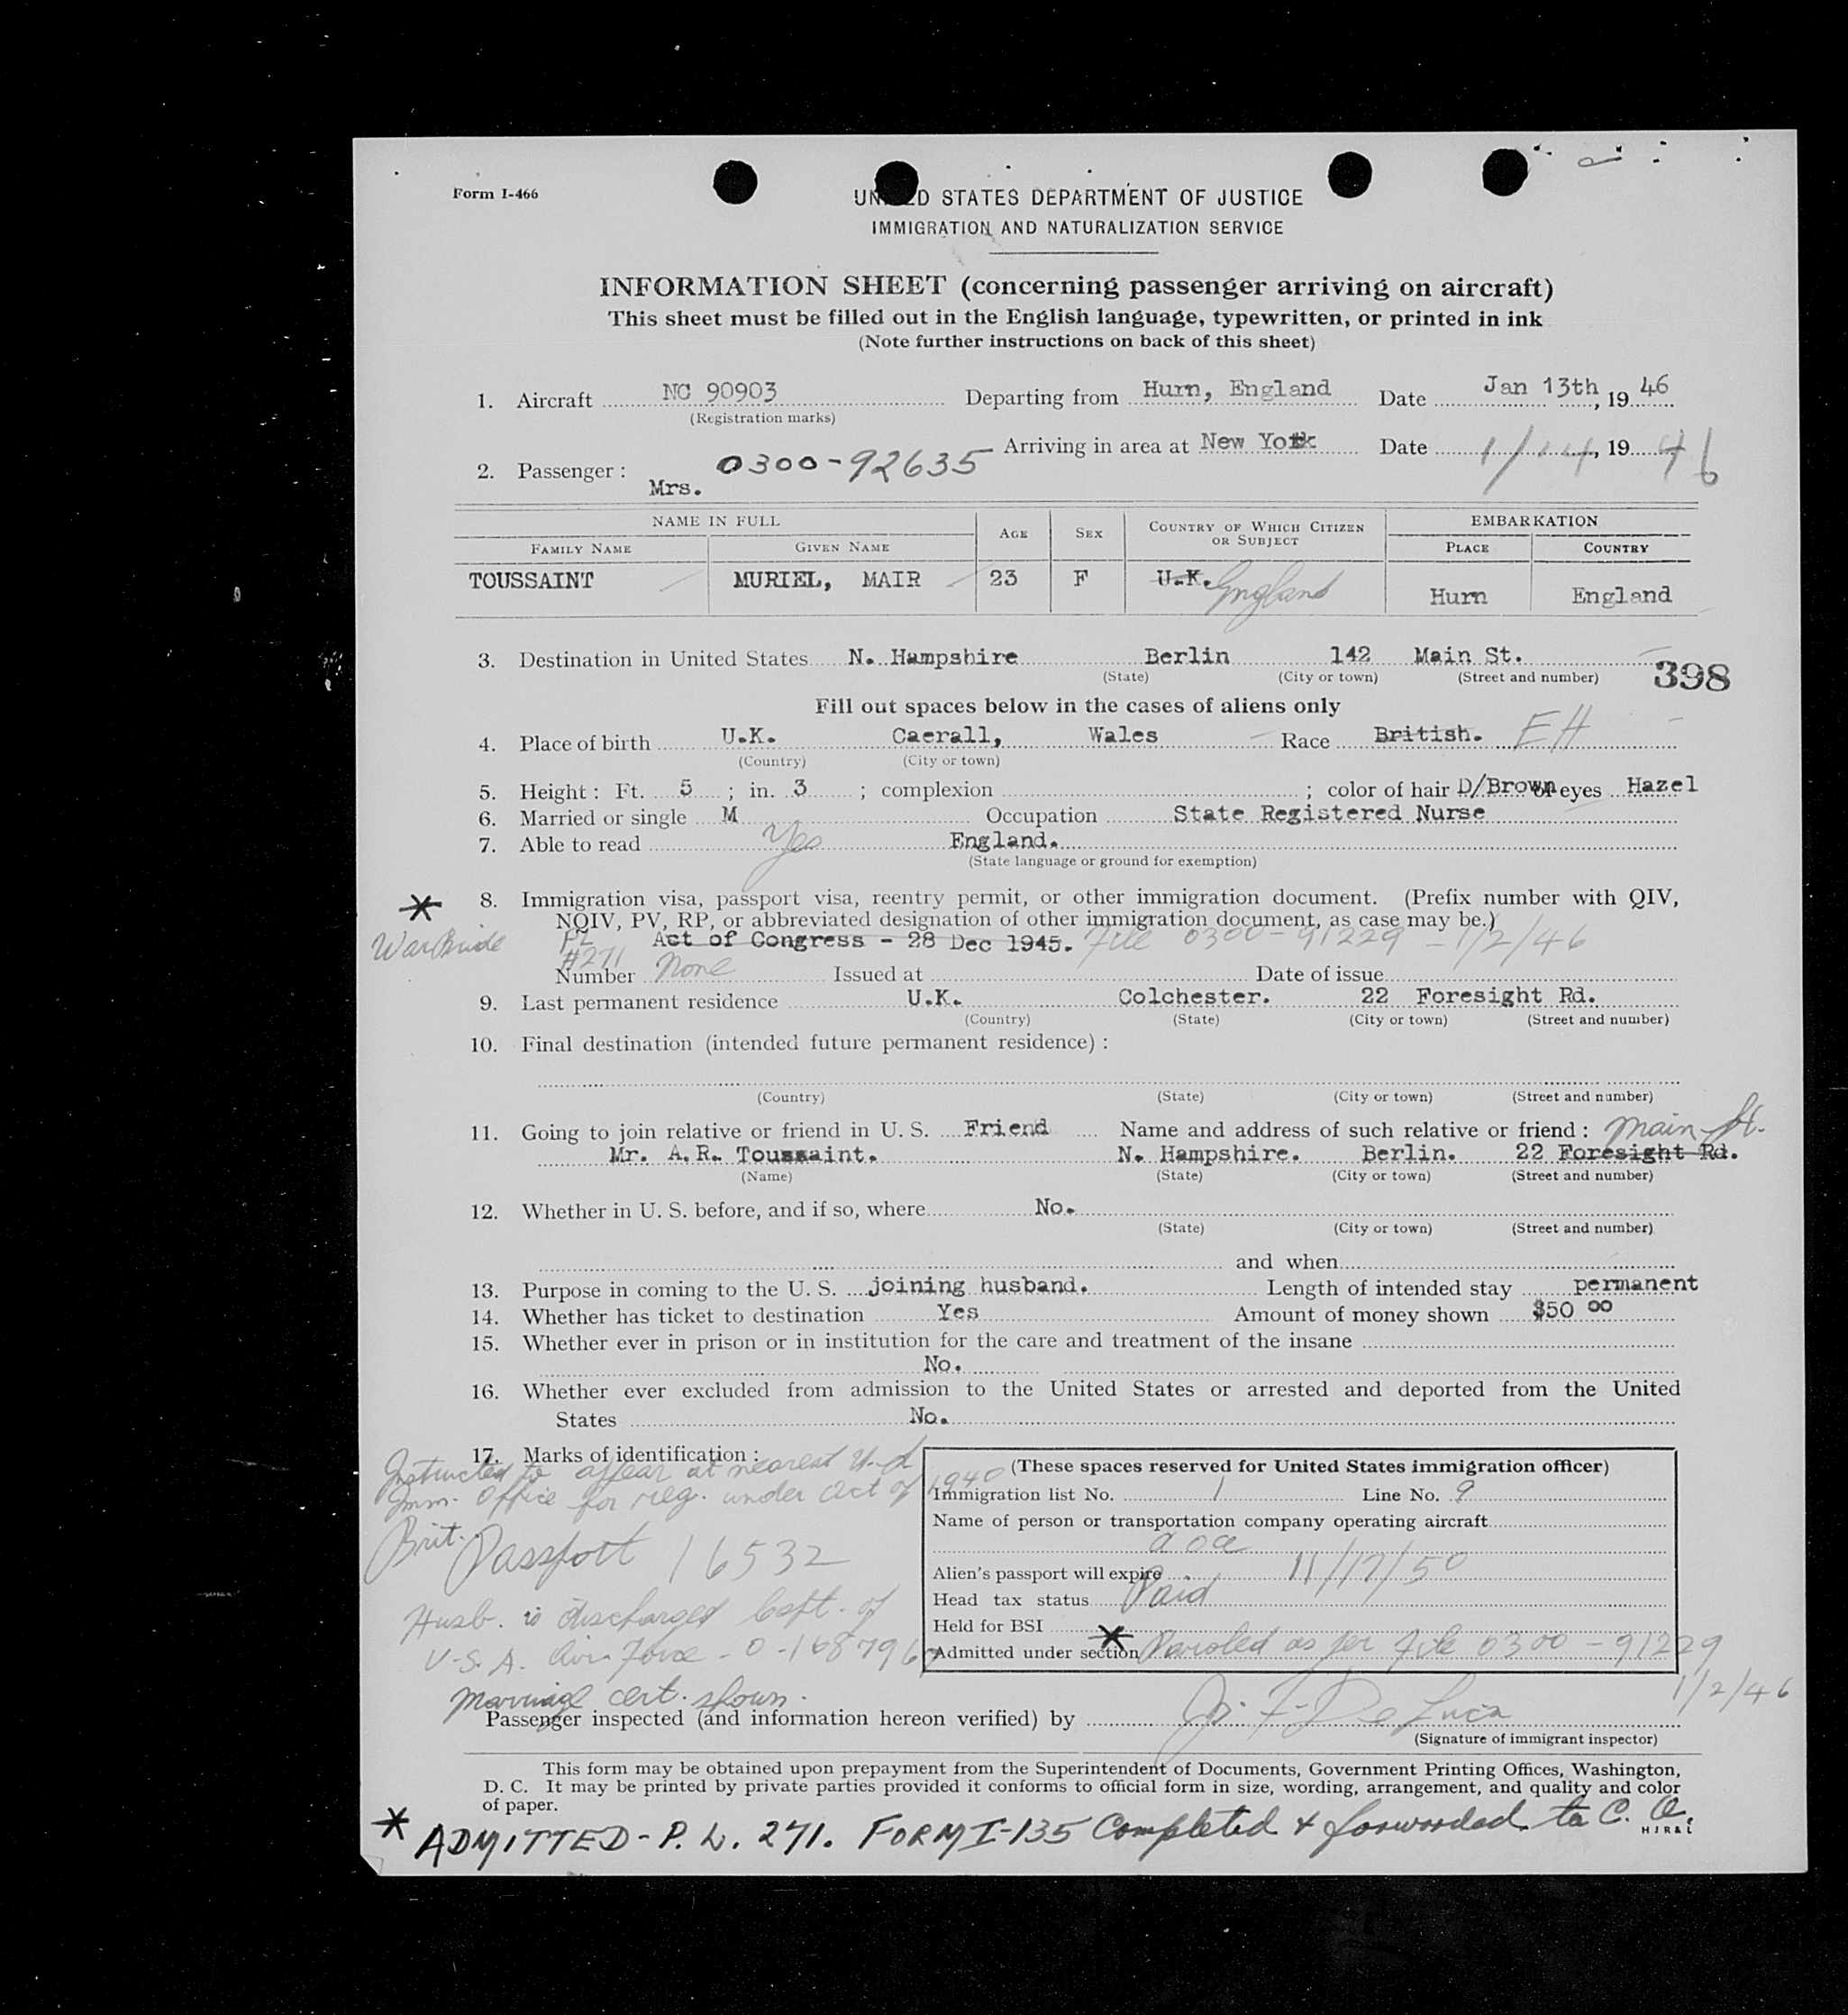 Form I-466
UNITED STATES DEPARTMENT OF JUSTICE
IMMIGRATION AND NATURALIZATION SERVICE
INFORMATION SHEET (concerning passenger arriving on aircraft)
This sheet must be filled out in the English language, typewritten, or printed in ink
(Note further instructions on back of this sheet)
1. Aircraft NC 90903 Departing from Hurn, England Date Jan 13th, 19 46
(Registration marks)
Arriving in area at New York Date 1/14, 19 46
2. Passenger: Mrs. 0300-92635
NAME IN FULL AGE SEX COUNTRY OF WHICH CITIZEN OR SUBJECT EMBARKATION
FAMILY NAME GIVEN NAME PLACE COUNTRY
TOUSSAINT MURIEL, MAIR 23 F U.K. England Hurn England
3. Destination in United States N. Hampshire Berlin 142 Main St.
(State) (City or town) (Street and number)
398
Fill out spaces below in the cases of aliens only
4. Place of birth U.K. Caerall, Wales Race British. EH
(Country) (City or town)
5. Height: Ft. 5; in. 3; complexion ; color of hair D/Brown of eyes Hazel
6. Married or single M Occupation State Registered Nurse
7. Able to read Yes England.
(State language or ground for exemption)
* 8. Immigration visa, passport visa, reentry permit, or other immigration document. (Prefix number with QIV,
NQIV, PV, RP, or abbreviated designation of other immigration document, as case may be.)
War Bride PL #271 Act of Congress - 28 Dec 1945. File 0300-91229 - 1/2/46
Number None Issued at Date of issue
9. Last permanent residence U.K. Colchester. 22 Foresight Rd.
(Country) (State) (City or town) (Street and number)
10. Final destination (intended future permanent residence):
(Country) (State) (City or town) (Street and number)
11. Going to join relative or friend in U. S. Friend Name and address of such relative or friend: Main St.
Mr. A.R. Toussaint. N. Hampshire. Berlin. 22 Foresight Rd.
(Name) (State) (City or town) (Street and number)
12. Whether in U. S. before, and if so, where No.
(State) (City or town) (Street and number)
and when
13. Purpose in coming to the U. S. joining husband. Length of intended stay permanent
14. Whether has ticket to destination Yes Amount of money shown $50 00
15. Whether ever in prison or in institution for the care and treatment of the insane
No.
16. Whether ever excluded from admission to the United States or arrested and deported from the United
States No.
17. Marks of identification:
Instructed to appear at nearest U.S.
Imm. Office for reg. under Act of 1940
Brit. Passport 16532
Husb. is discharged Capt. of
U.S.A. Air Force - 0-1687967
Marriage cert. shown.
(These spaces reserved for United States immigration officer)
Immigration list No. 1 Line No. 9
Name of person or transportation company operating aircraft
aoa
Alien's passport will expire 11/17/50
Head tax status Paid
Held for BSI
Admitted under section * Paroled as per File 0300-91229
1/2/46
Passenger inspected (and information hereon verified) by J. F. De Luca
(Signature of immigrant inspector)
This form may be obtained upon prepayment from the Superintendent of Documents, Government Printing Offices, Washington,
D. C. It may be printed by private parties provided it conforms to official form in size, wording, arrangement, and quality and color
of paper.
* ADMITTED - P. L. 271. FORM I-135 Completed & forwarded to C. O.
HJR&L